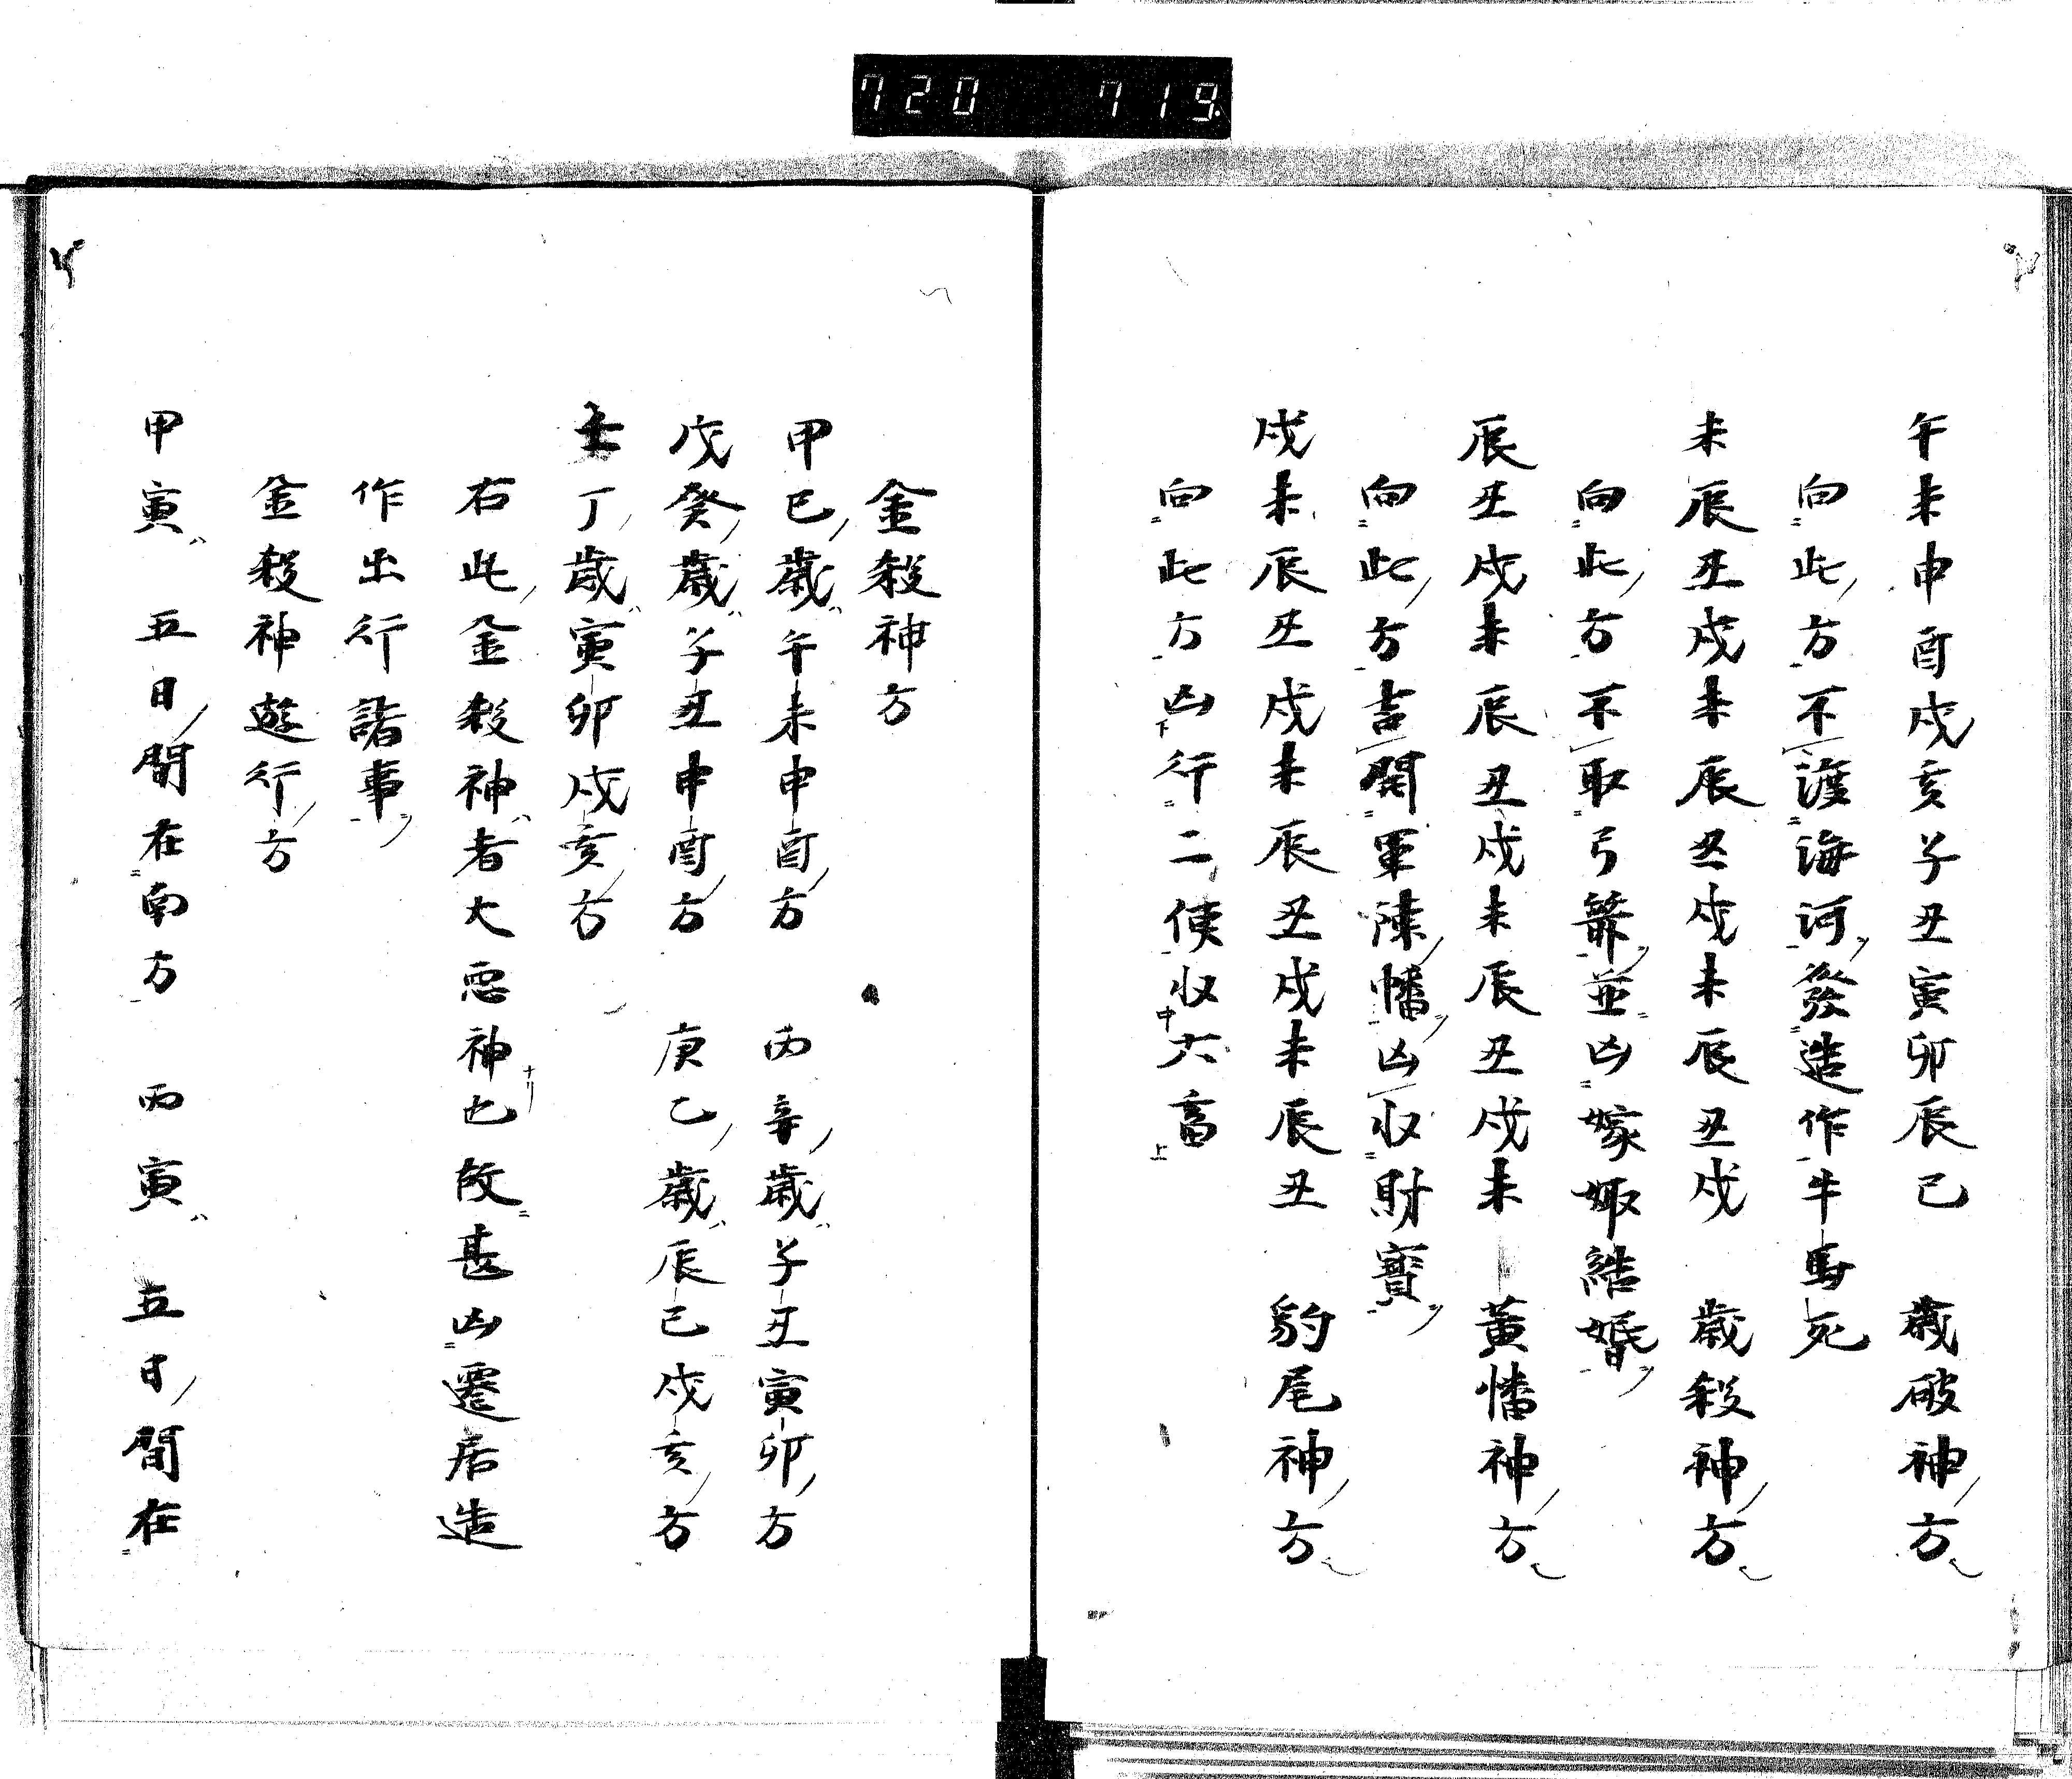 720 719
午未申酉戌亥子丑寅卯辰巳 歳破神方
向此方不渡海河發造作牛馬死
未辰丑戌未辰丑戌未辰丑戌 歳殺神方
向此方不取弓箭並凶嫁娵結婚
辰丑戌未辰丑戌未辰丑戌未 黄幡神方
向此方吉開軍陳幡凶収財寳
戌未辰丑戌未辰丑戌未辰丑 豹尾神方
向此方凶行二使収六畜
金殺神方
甲己歳午未申酉方 丙辛歳子丑寅卯方
戊癸歳子丑申酉方 庚乙歳辰巳戌亥方
壬丁歳寅卯戌亥方
右此金殺神者大悪神也故甚凶遷居造
作出行諸事
金殺神遊行方
甲寅 五日間在南方 丙寅 五日間在